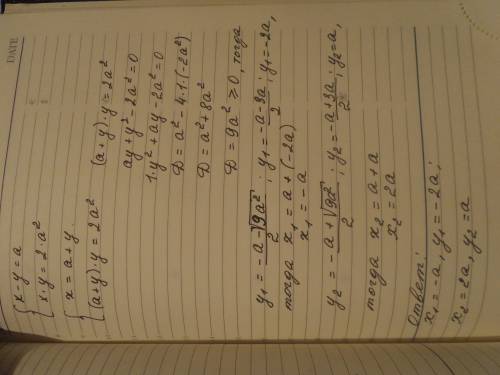 DATE
x - y = a
x · y = 2 · a²
x = a + y
(a+y) · y = 2a²
(a+y) · y = 2a²
ay + y² - 2a² = 0
1·y² + ay - 2a² = 0
D = a² - 4·1·(-2a²)
D = a² + 8a²
D = 9a² ≥ 0, тогда
y₁ = (-a - √9a²)/2 ; y₁ = (-a - 3a)/2 ; y₁ = -2a,
тогда x₁ = a + (-2a)
x₁ = -a
y₂ = (-a + √9a²)/2 ; y₂ = (-a + 3a)/2 ; y₂ = a,
тогда x₂ = a + a
x₂ = 2a
Ответ:
x₁ = -a, y₁ = -2a ;
x₂ = 2a, y₂ = a